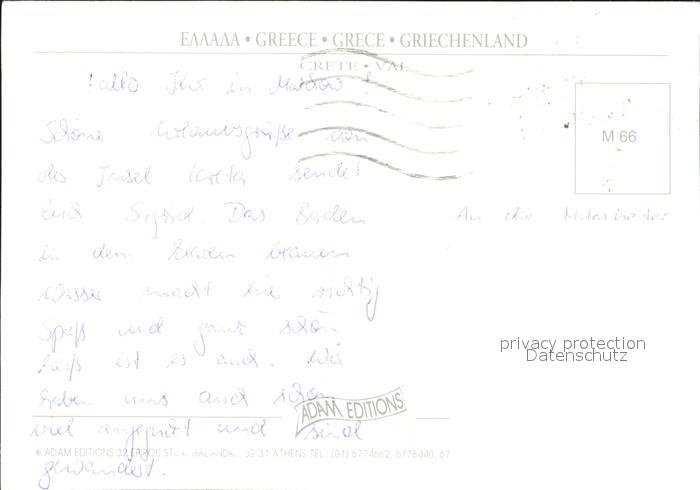 ΕΛΛΑΔΑ • GREECE • GRECE • GRIECHENLAND
CRETE • VAI
Hallo Ihr in !
M 66
Schöne Urlaubsgrüße von
der Insel Kreta sendet
Euch Sigrid. Das Baden
An die Mitarbeiter
in dem blauen
Wasser macht hier richtig
Spaß und ganz schön
privacy protection
Datenschutz
heiß ist es auch. Wir
haben uns auch schon
ADAM EDITIONS
viel angeguckt und sind
© ADAM EDITIONS 32 31 ATHENS TEL: (01) 6774662, 6778440, 67
gewandert.